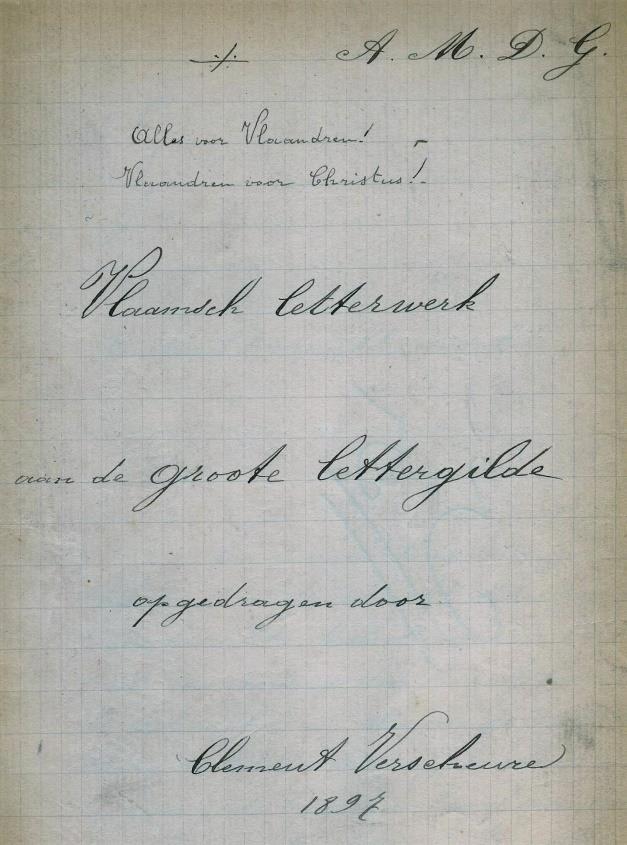 A. M. D. G.
Alles voor Vlaandren!
Vlaandren voor Christus!
Vlaamsch letterwerk
aan de groote lettergilde
opgedragen door
Clement Verscheure
1897